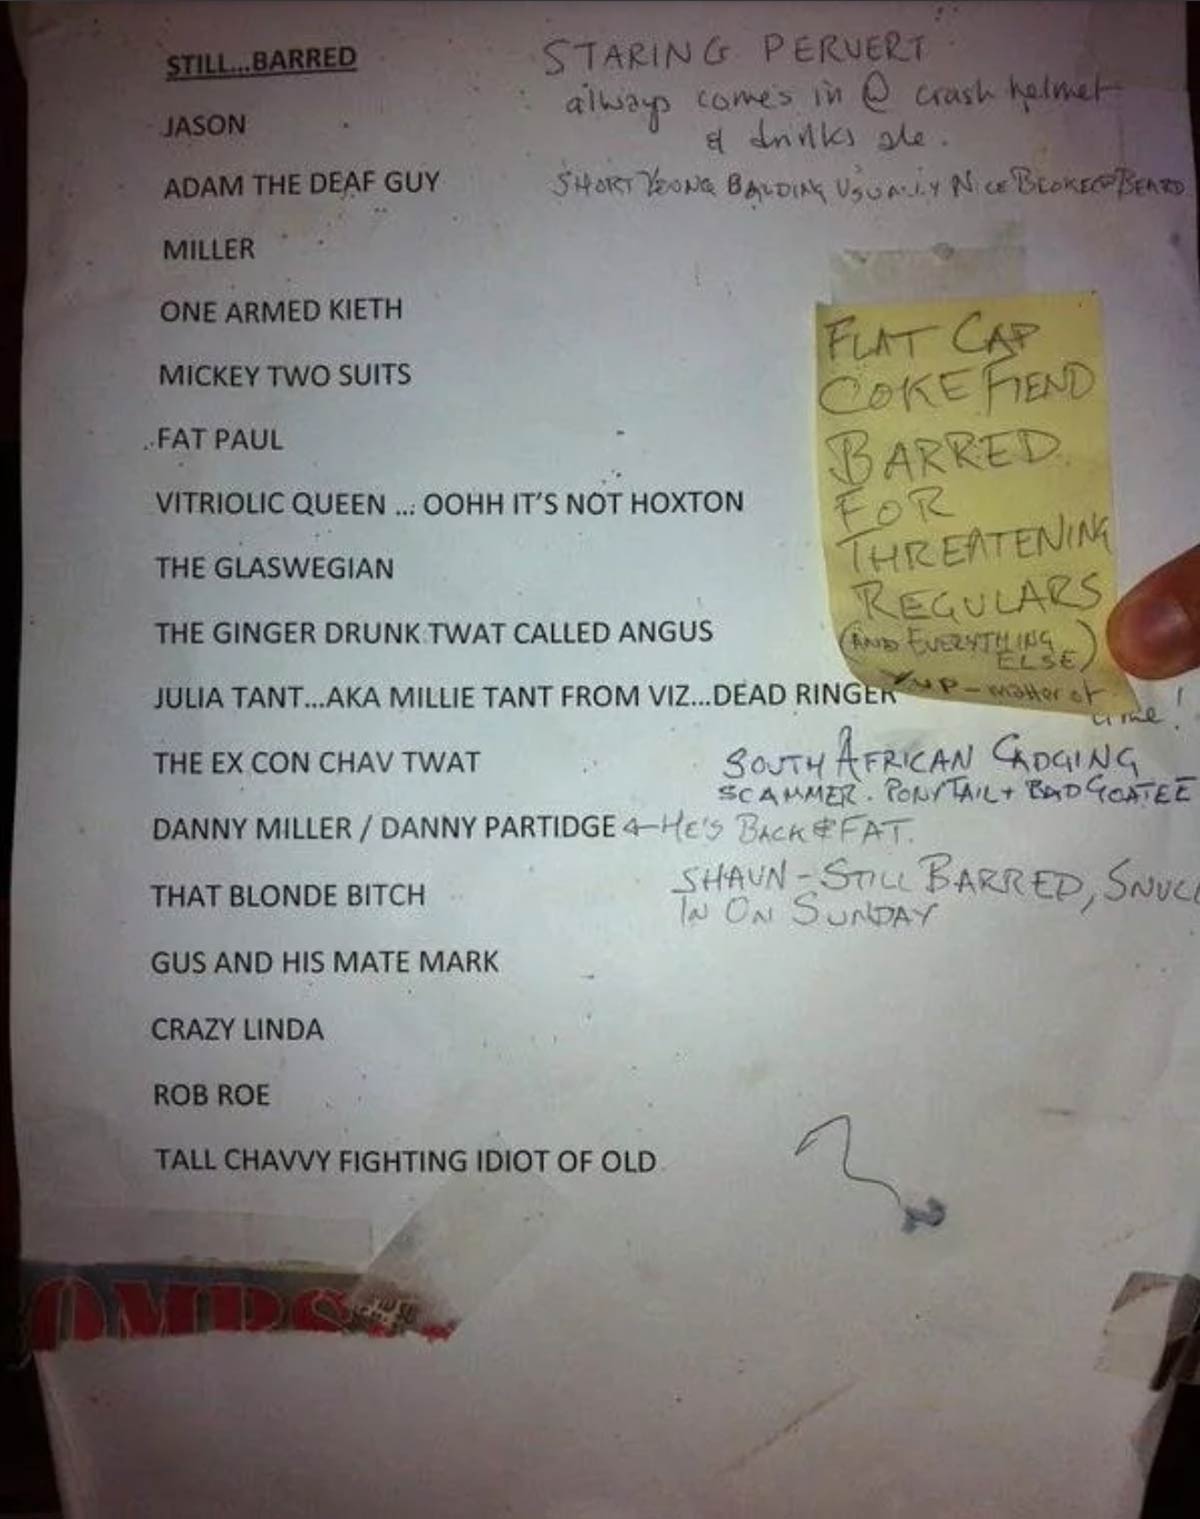 STILL...BARRED
STARING PERVERT
always comes in @ crash helmet
& drinks ale.
JASON
ADAM THE DEAF GUY
SHORT YOUNG BALDING USUALLY NICE BLOKE @ BEARD
MILLER
ONE ARMED KIETH
MICKEY TWO SUITS
FAT PAUL
VITRIOLIC QUEEN ... OOHH IT'S NOT HOXTON
THE GLASWEGIAN
THE GINGER DRUNK TWAT CALLED ANGUS
FLAT CAP
COKE FIEND
BARRED
FOR
THREATENING
REGULARS
(AND EVERYTHING
ELSE)
YUP - matter of
time!
JULIA TANT...AKA MILLIE TANT FROM VIZ...DEAD RINGER
THE EX CON CHAV TWAT
SOUTH AFRICAN CADGING
SCAMMER. PONYTAIL + BAD GOATEE
DANNY MILLER / DANNY PARTIDGE ← HE'S BACK & FAT.
THAT BLONDE BITCH
SHAUN - STILL BARRED, SNUC
IN ON SUNDAY
GUS AND HIS MATE MARK
CRAZY LINDA
ROB ROE
TALL CHAVVY FIGHTING IDIOT OF OLD